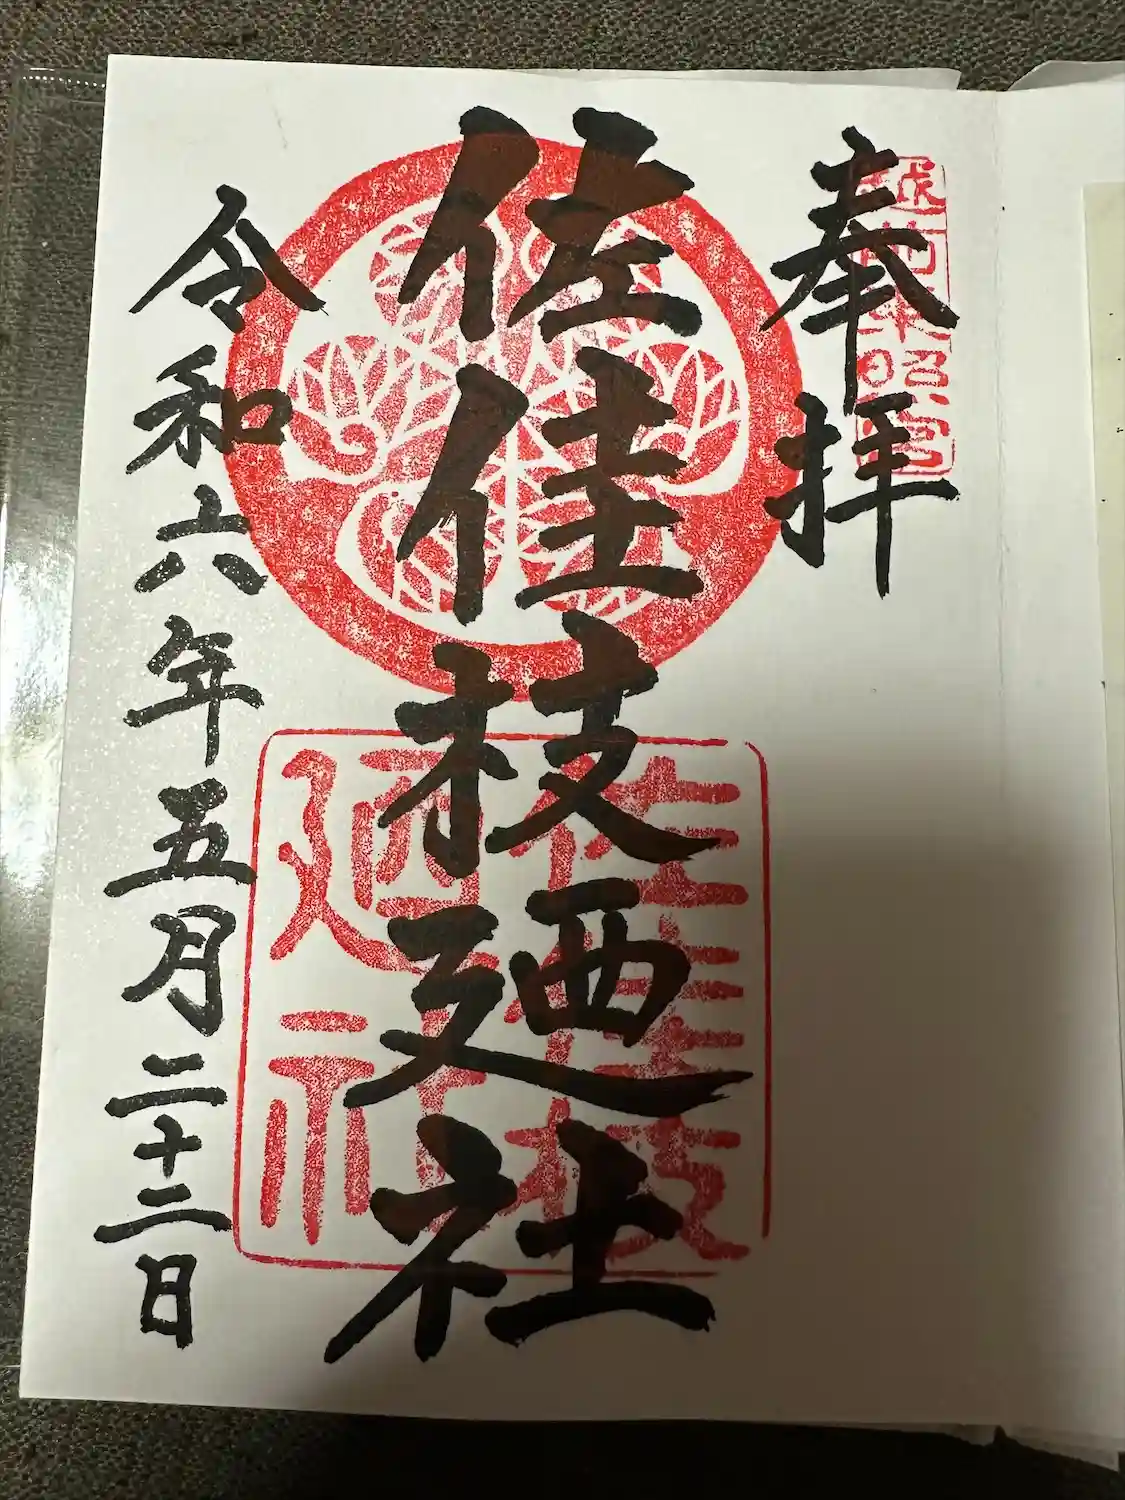 奉拝
越前東照宮
佐佳枝廼社
佐佳枝
廼社
令和六年五月二十三日